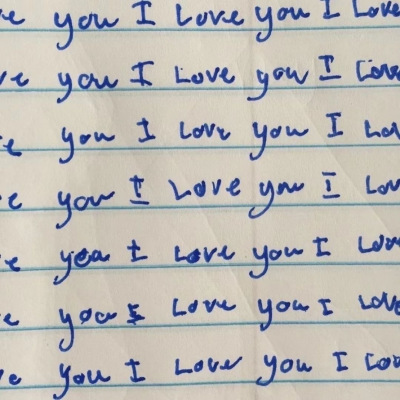 ve you I Love you I Love
ve you I Love you I Love
e you I Love you I Lov
e you I Love you I Lov
e you I Love you I Love
e you I Love you I Love
ve you I Love you I Lov